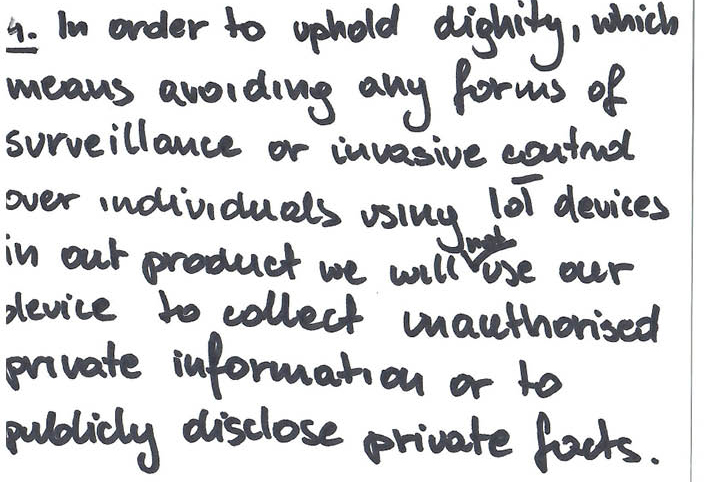 4. In order to uphold dighity, which
means avoiding any forms of
surveillance or invasive control
over individuals using IoT devices
in out product we will not use our
device to collect unauthorised
private information or to
publicly disclose private facts.